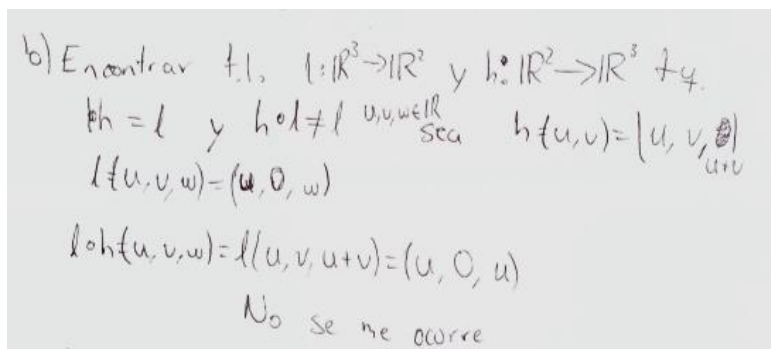 b) Encontrar t.l. l:ℝ³→ℝ² y h:ℝ²→ℝ³ tq.
h = l y h∘l≠l u,v,w∈ℝ sea h(u,v)=(u, v, u+v)
l(u,v,w)=(u,0,w)
l∘h(u,v,w)=l(u,v,u+v)=(u,0,u)
No se me ocurre